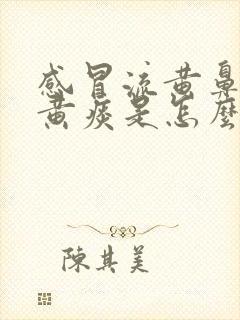 感冒流黄鼻
黄痰是怎麽
陳其美